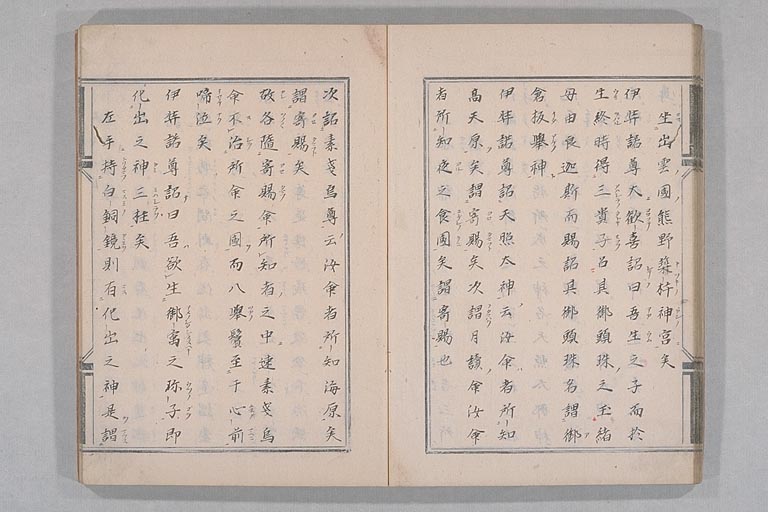 坐出雲國熊野築杵神宮矣
伊弉諾尊大歡喜詔曰吾生之子而於
生終時得三貴子召其御頸珠之玉緒
母由良迦斯而賜詔其御頸珠名謂御
倉板擧神
伊弉諾尊詔天照太神云汝命者所知
高天原矣謂寄賜矣次謂月讀命汝命
者所知夜之食國矣謂寄賜也
次詔素戔烏尊云汝命者所知海原矣
謂寄賜矣
故各隨寄賜命所知者之中速素戔烏
命不治所命之國而八擧鬚至于心前
啼泣矣
伊弉諾尊詔曰吾欲生御宙之珎子即
化出之神三柱矣
左手持白銅鏡則有化出之神是謂